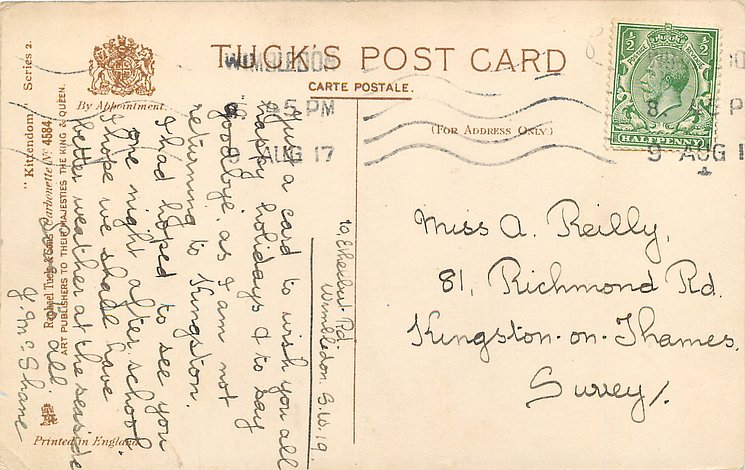 TUCK'S POST CARD
CARTE POSTALE.
(FOR ADDRESS ONLY.)
By Appointment.
"Kittendom" Series 2.
Raphael Tuck & Sons "Carbonette" No. 4584.
ART PUBLISHERS TO THEIR MAJESTIES THE KING & QUEEN.
Printed in England
WIMBLEDON
8.45 PM
9 AUG 17
½ ½
POSTAGE REVENUE
HALFPENNY
8. PM
9 AUG 1
10 Rd.
Wimbledon S.W.19.
Just a card to wish you all
happy holidays & to say
"goodbye" as I am not
returning to Kingston.
I had hoped to see you
one night after school.
I hope we shall have
better weather at the seaside
Love to all
J. McShane
Miss A. Reilly,
81, Richmond Rd.
Kingston-on-Thames.
Surrey/.